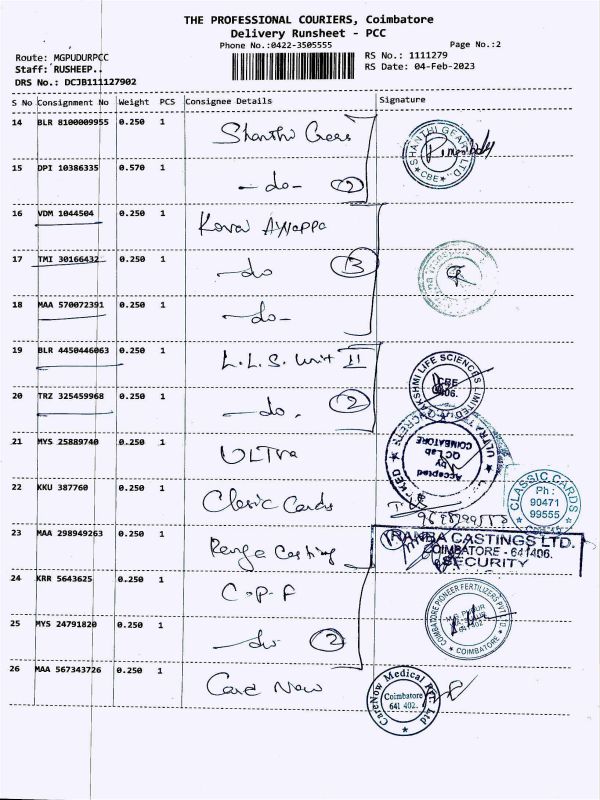 THE PROFESSIONAL COURIERS, Coimbatore
Delivery Runsheet - PCC
Phone No.:0422-3505555
Page No.:2
Route: MGPUDURPCC
RS No.: 1111279
Staff: RUSHEEP..
RS Date: 04-Feb-2023
DRS No.: DCJB111127902
S No Consignment No Weight PCS Consignee Details Signature
14 BLR 8100009955 0.250 1 Shanthi Gears
SHANTHI GEARS LTD. CBE
15 DPI 10386335 0.570 1 -do- 2
16 VDM 1044504 0.250 1 Kovai Ayyappa
17 TMI 30166432 0.250 1 -do 3
18 MAA 570072391 0.250 1 -do-
19 BLR 4450446063 0.250 1 L.L.S. Unit II
LAKSHMI LIFE SCIENCES LIMITED CBE 406.
20 TRZ 325459968 0.250 1 -do. 2
21 MYS 25889740 0.250 1 ULTra
Accepted by QC Lab COIMBATORE
22 KKU 387760 0.250 1 Clasic Cards
CLASSIC CARDS Ph: 90471 99555
23 MAA 298949263 0.250 1 Ranga Casting
CASTINGS LTD.
COIMBATORE - 641406.
SECURITY
24 KRR 5643625 0.250 1 C.P.F
COIMBATORE PIONEER FERTILIZERS PVT LTD COIMBATORE
25 MYS 24791820 0.250 1 -do- 2
26 MAA 567343726 0.250 1 Care Now
CareNow Medical Pvt. Ltd Coimbatore 641 402.